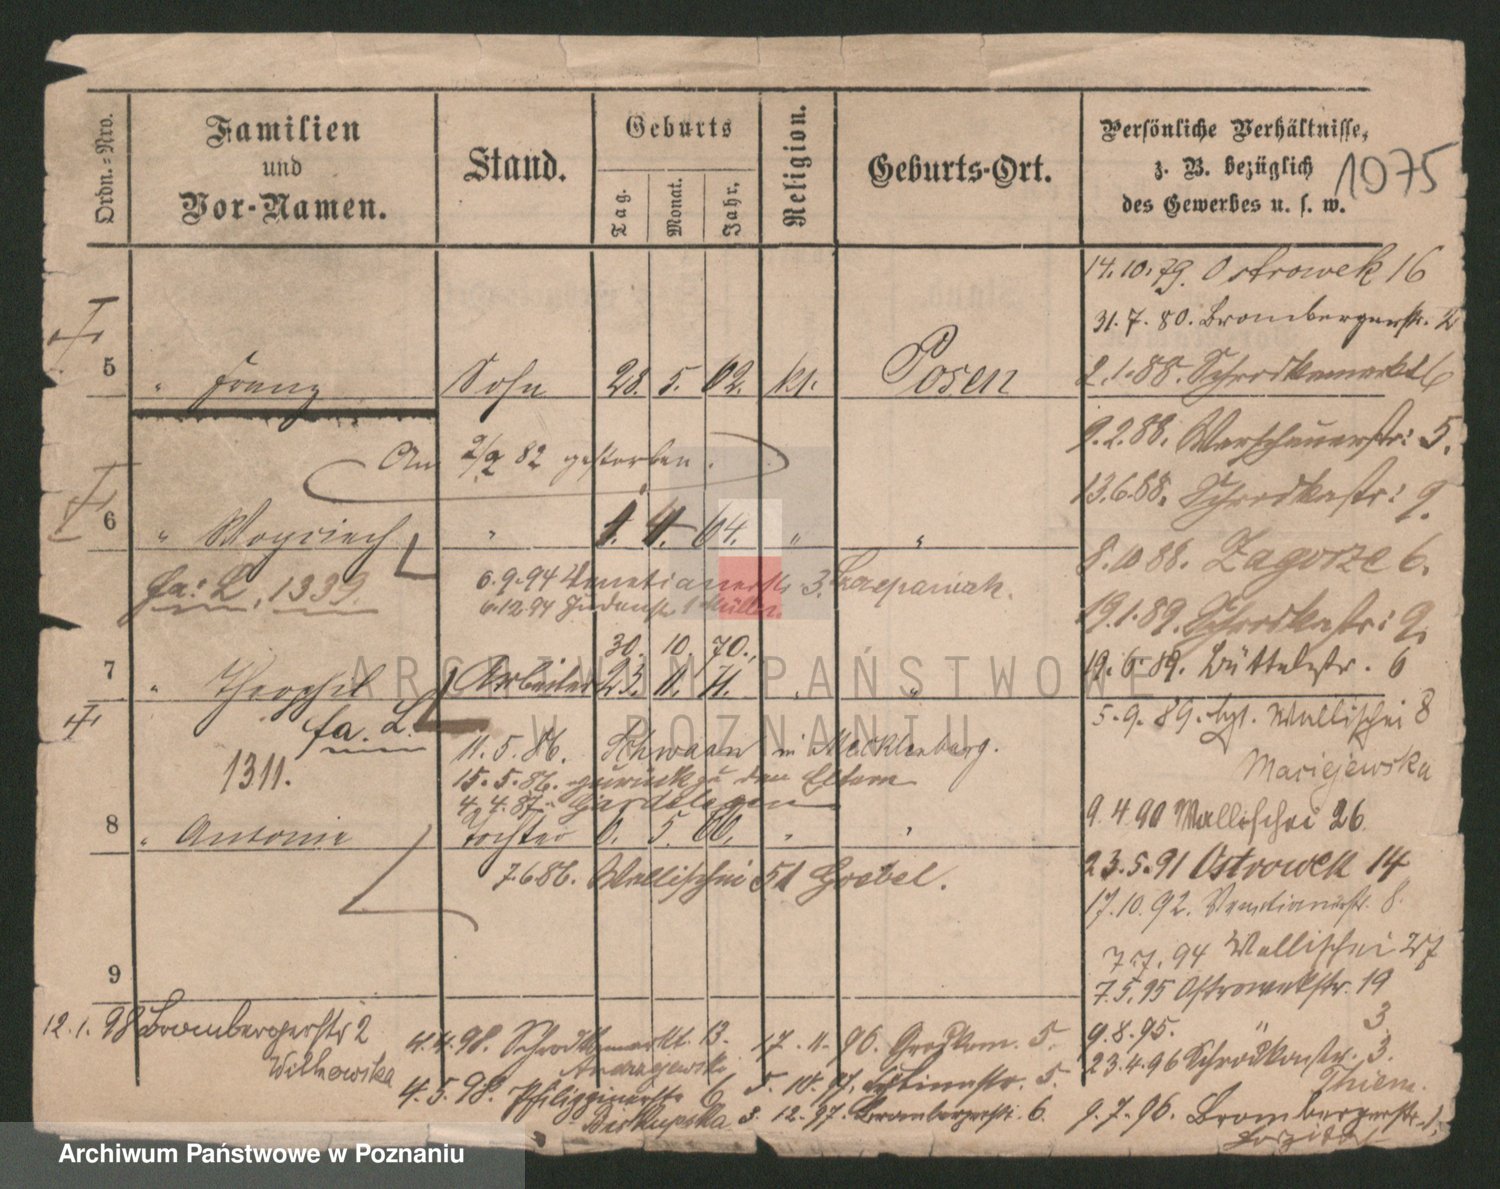 Ordn.=Nro.
Familien
und
Vor-Namen.
Stand.
Geburts
Tag.
Monat.
Jahr.
Religion.
Geburts-Ort.
Persönliche Verhältnisse,
z. B. bezüglich
des Gewerbes u. s. w.
1075
14.10.79. Ostrowek 16
31.7.80. Brombergerstr. 2
5 " Franz Sohn 28. 5. 62. kt. Posen
2.1.88. Schrodkamarkt 6
Am 2/9 82 gestorben.
9.2.88. Warschauerstr: 5.
13.6.88. Schrodkastr: 9.
6 " Woyciech " 1. 4. 64. " "
8.10.88. Zagorze 6.
fa: L. 1339.
6.9.94 Venetianerstr 3. Szczepaniak.
6.12.94 Judenstr. 1 Müller.
19.1.89. Schrodkastr: 9.
30. 10. 70.
19.6.89. Büttelstr. 6
7 " Theophil Arbeiter 23. 11. 71. " "
5.9.89. Wallischei 8
Maciejewska
fa. L.
1311.
11.5.86. Schwaan in Mecklenburg.
15.5.86. zurück zu den Eltern
4.4.87. Gardelegen
9.4.90 Wallischei 26
8 " Antonie Tochter 6. 5. 60. " "
23.5.91 Ostrowek 14
7.6.86. Wallischei 51 Goebel.
17.10.92. Venetianerstr. 8.
7.7.94 Wallischei 27
9
7.5.95 Ostrowekstr. 19
9.8.95. " 3
12.1.98 Brombergerstr 2
Witkowska
4.4.98. Schrodkamarkt. 13.
Andrzejewski
17.11.96. Gredkom. 5.
23.4.96 Schrodkastr. 3.
Thiem.
4.5.98. Philippinerstr 6
Biskupska
5.10.97. 5.
3.12.97. Brombergerstr. 6.
9.7.96. Brombergerstr.
ARCHIWUM PAŃSTWOWE
W POZNANIU
Archiwum Państwowe w Poznaniu